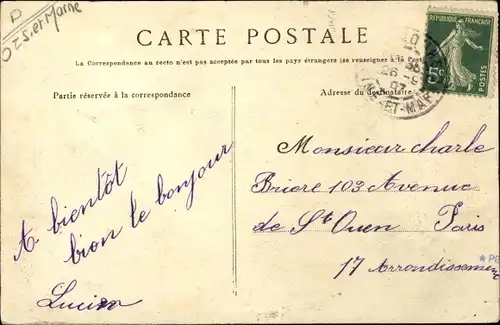 D
Ozs, et Marne
CARTE POSTALE
La Correspondance au recto n'est pas acceptée par tous les pays étrangers (se renseigner à la Poste
RÉPUBLIQUE FRANÇAISE
5c
POSTES
26 -9
07
NE-ET-MAR
Partie réservée à la correspondance
Adresse du destinataire
A bientôt
bien le bonjour
Lucien
Monsieur charle
Briere 103 Avenue
de St Ouen Paris
17 Arrondissement